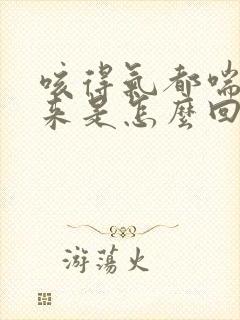 咳得氣都喘
來是怎麼回
游蕩火